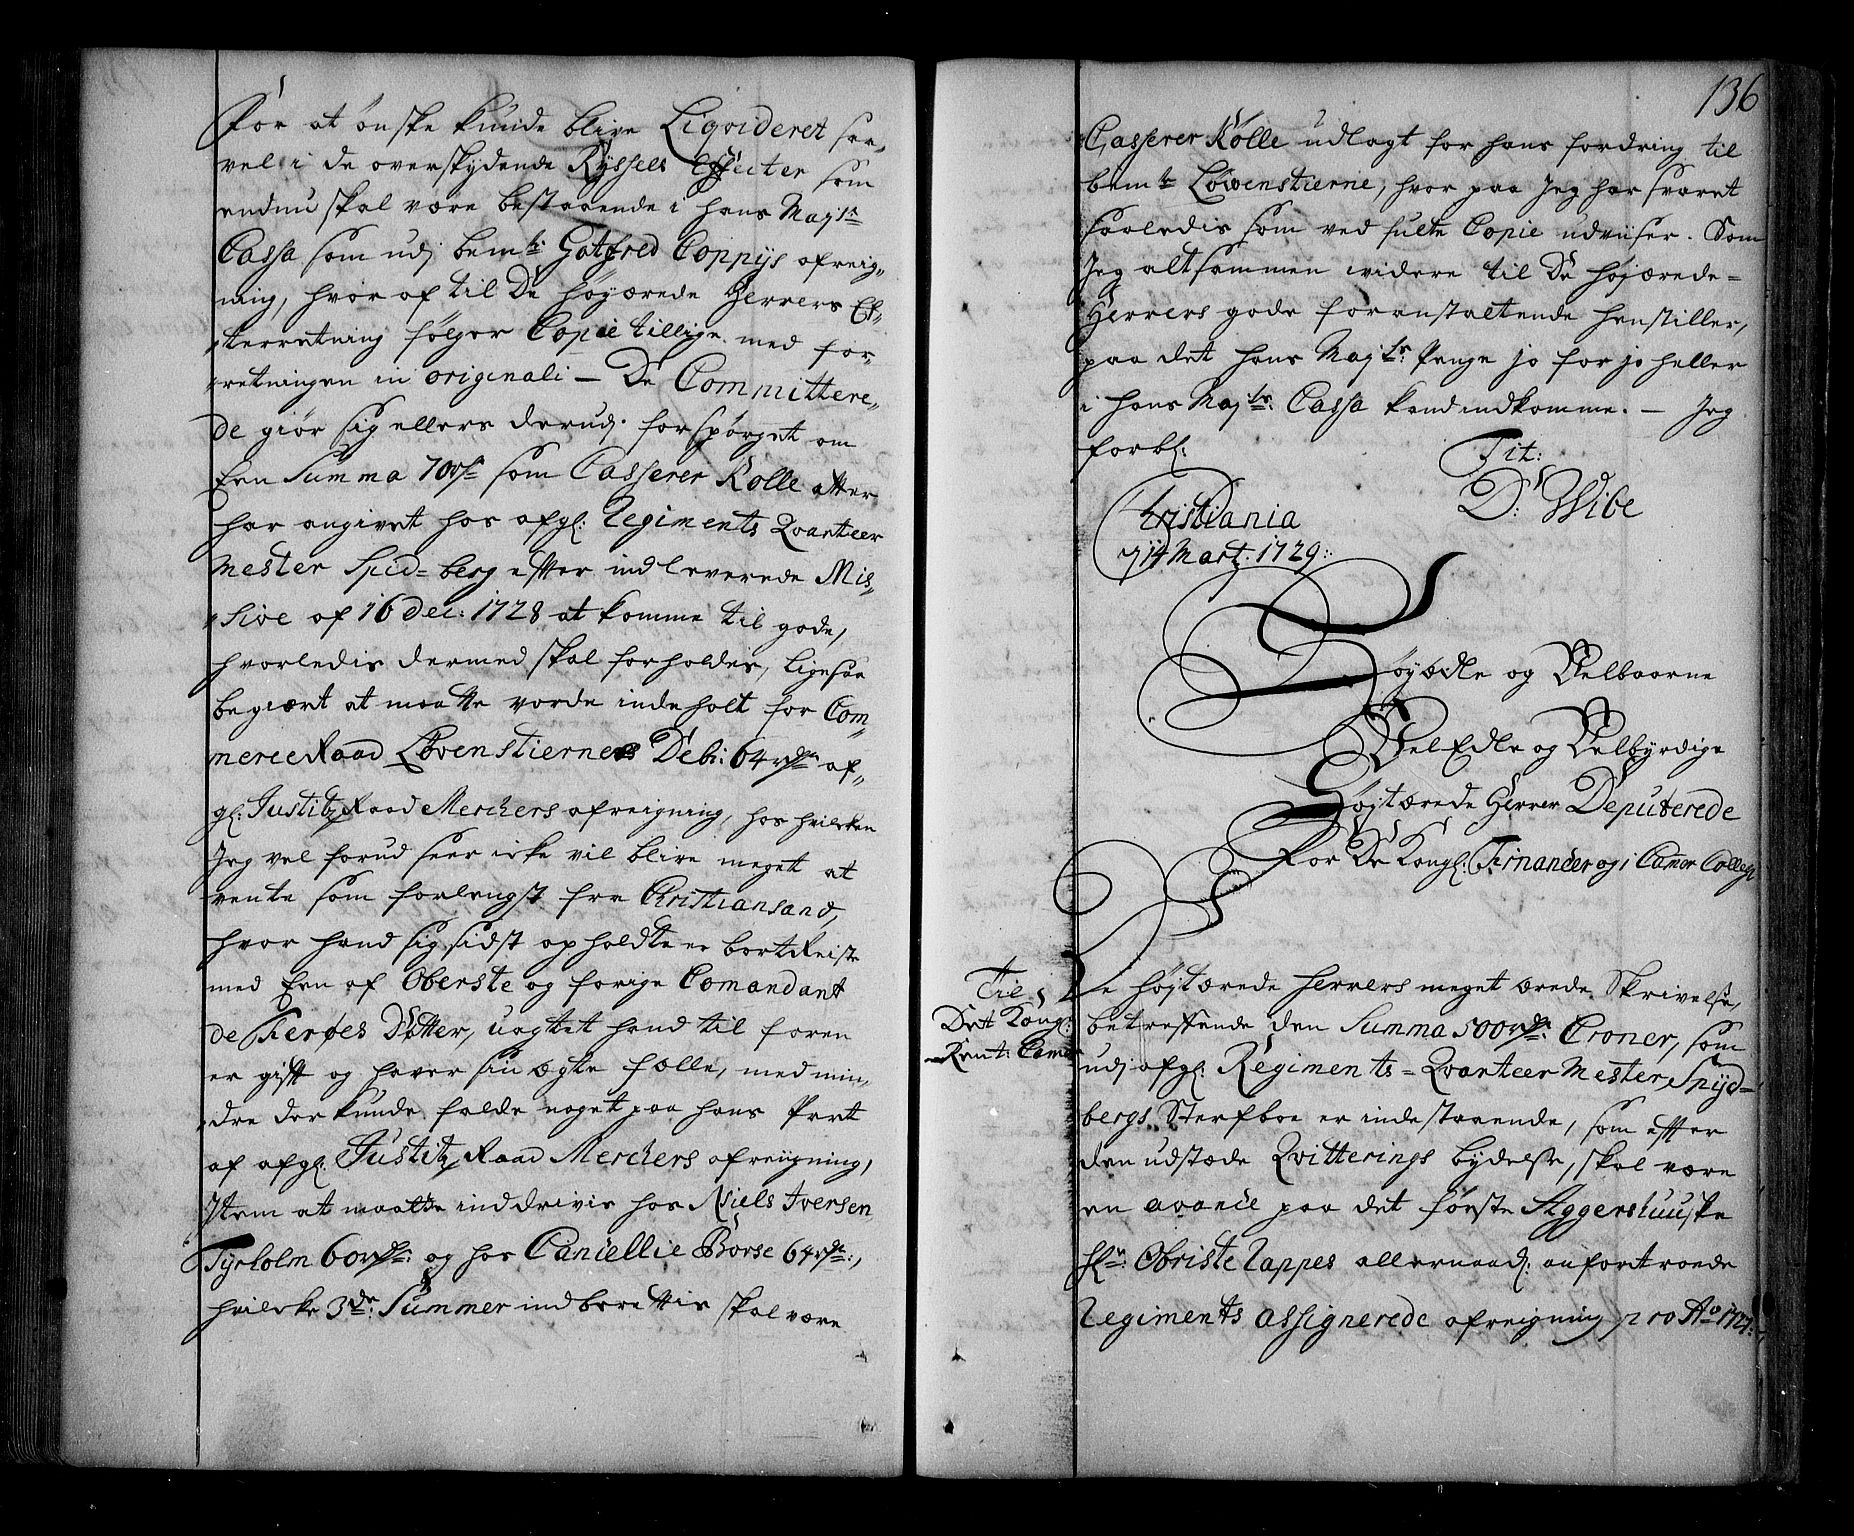 for at ønske kunde blive Liqvideret saa„
vel i de overskydende Ryssels Effecter som
endnu skal være bestaaende i hans Maj:ts
Cassa som udj bem:te Gotfred Coppijs afreig„
ning, hvor af til De høyærede Herrers Ef„
„terretning følger Copie tillige med for„
„retningen in originali – De Committere„
de giør sig ellers derudj forspørget om
Een Summa 70 rdr som Casserer Rolle atter
har angivet hos afgl: Regiments Qvarteer
Mester Spid-berg efter indleverede Mis„
„sive af 16 Dec: 1728 at komme til gode,
hvorledis dermed skal forholdes, ligesaa
begiært at maatte vorde indeholt for Com„
merce Raad Løvenstiernes Debi: 64 rdr af„
gl: Justitz Raad Merckers afreigning, hos hvilcken
Jeg vel forud seer icke vil blive meget at
vente som forlengst fra Christiansand,
hvor hand sig sidst opholdte er bortReist
med Een af Oberste og forige Comandant
de Seroes Dotter, uagtet hand til foren
er gift og haver sin ægte fælle, med min„
„dre der kunde falde noget paa hans Part
af afgl: Justitz Raad Merckers afreigning,
Item at maatte inddrivis hos Niels Iversen
Tyrholm 60 rdr: og hos Cancellie Borse 64 rdr:,
hvilcke 3de: Summer indberettis skal være
136
Casserer Rolle udlagt for hans fordring til
bem:te Løvenstierne, hvor paa Jeg har svaret
saaledis som ved fulte Copie udviser. Som
Jeg altsammen widere til De højærede-
Herrers gode foranstaltende henstiller,
paa det hans Maj:ts Penge jo før jo heller
i hans Maj:ts: Cassa kand indkomme. – Jeg
forbl:
Tit:
D: Wibe
Christiania
d 14 Mart: 1729:
Høyædle og Velbaarne
VelEdle og Velbyrdige
Højtærede Herrer Deputerede
For De Kongl: Financer og i Camer Colleg:
Til
Det Kongl:
Rent: Camer
De højtærede Herrers meget ærede Skrivelse,
betreffende den Summa 500 rdr: Croner, som
udj afgl: Regiments-Qvarteer Mester Spyd-
bergs Sterfboe er indestaaende, som efter
den udstæde Qvitterings bydelse, skal være
en avance paa det første Aggershuuske
Hr: Obriste Rappes allernaad: anfortroede
Regiments assignerede afreigning pro Ao 1727: